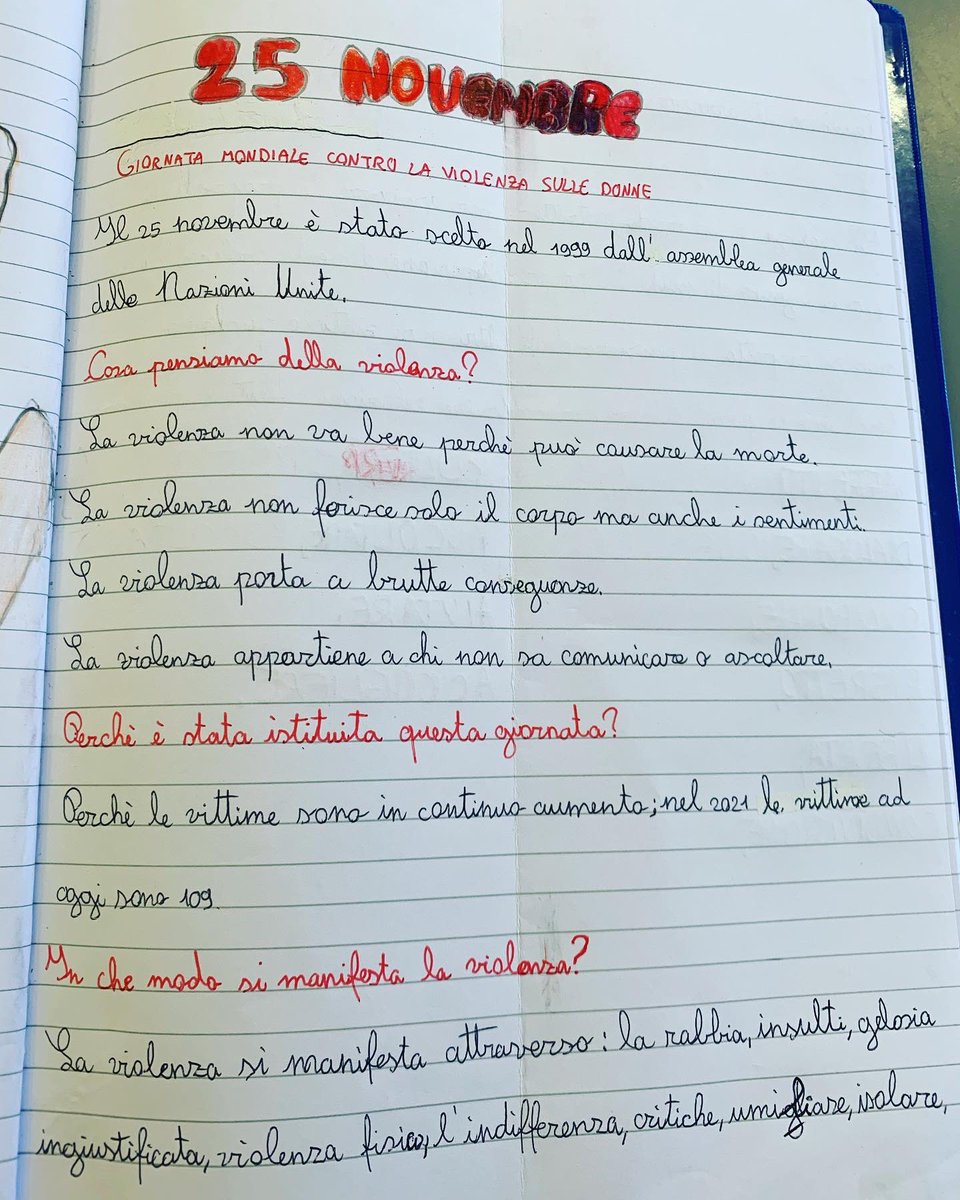 25 NOVEMBRE
GIORNATA MONDIALE CONTRO LA VIOLENZA SULLE DONNE
Il 25 novembre è stato scelto nel 1999 dall'assemblea generale
delle Nazioni Unite.
Cosa pensiamo della violenza?
La violenza non va bene perchè può causare la morte.
La violenza non ferisce solo il corpo ma anche i sentimenti.
La violenza porta a brutte conseguenze.
La violenza appartiene a chi non sa comunicare o ascoltare.
Perchè è stata istituita questa giornata?
Perchè le vittime sono in continuo aumento; nel 2021 le vittime ad
oggi sono 109.
In che modo si manifesta la violenza?
La violenza si manifesta attraverso: la rabbia, insulti, gelosia
ingiustificata, violenza fisica, l'indifferenza, critiche, umigliare, isolare,